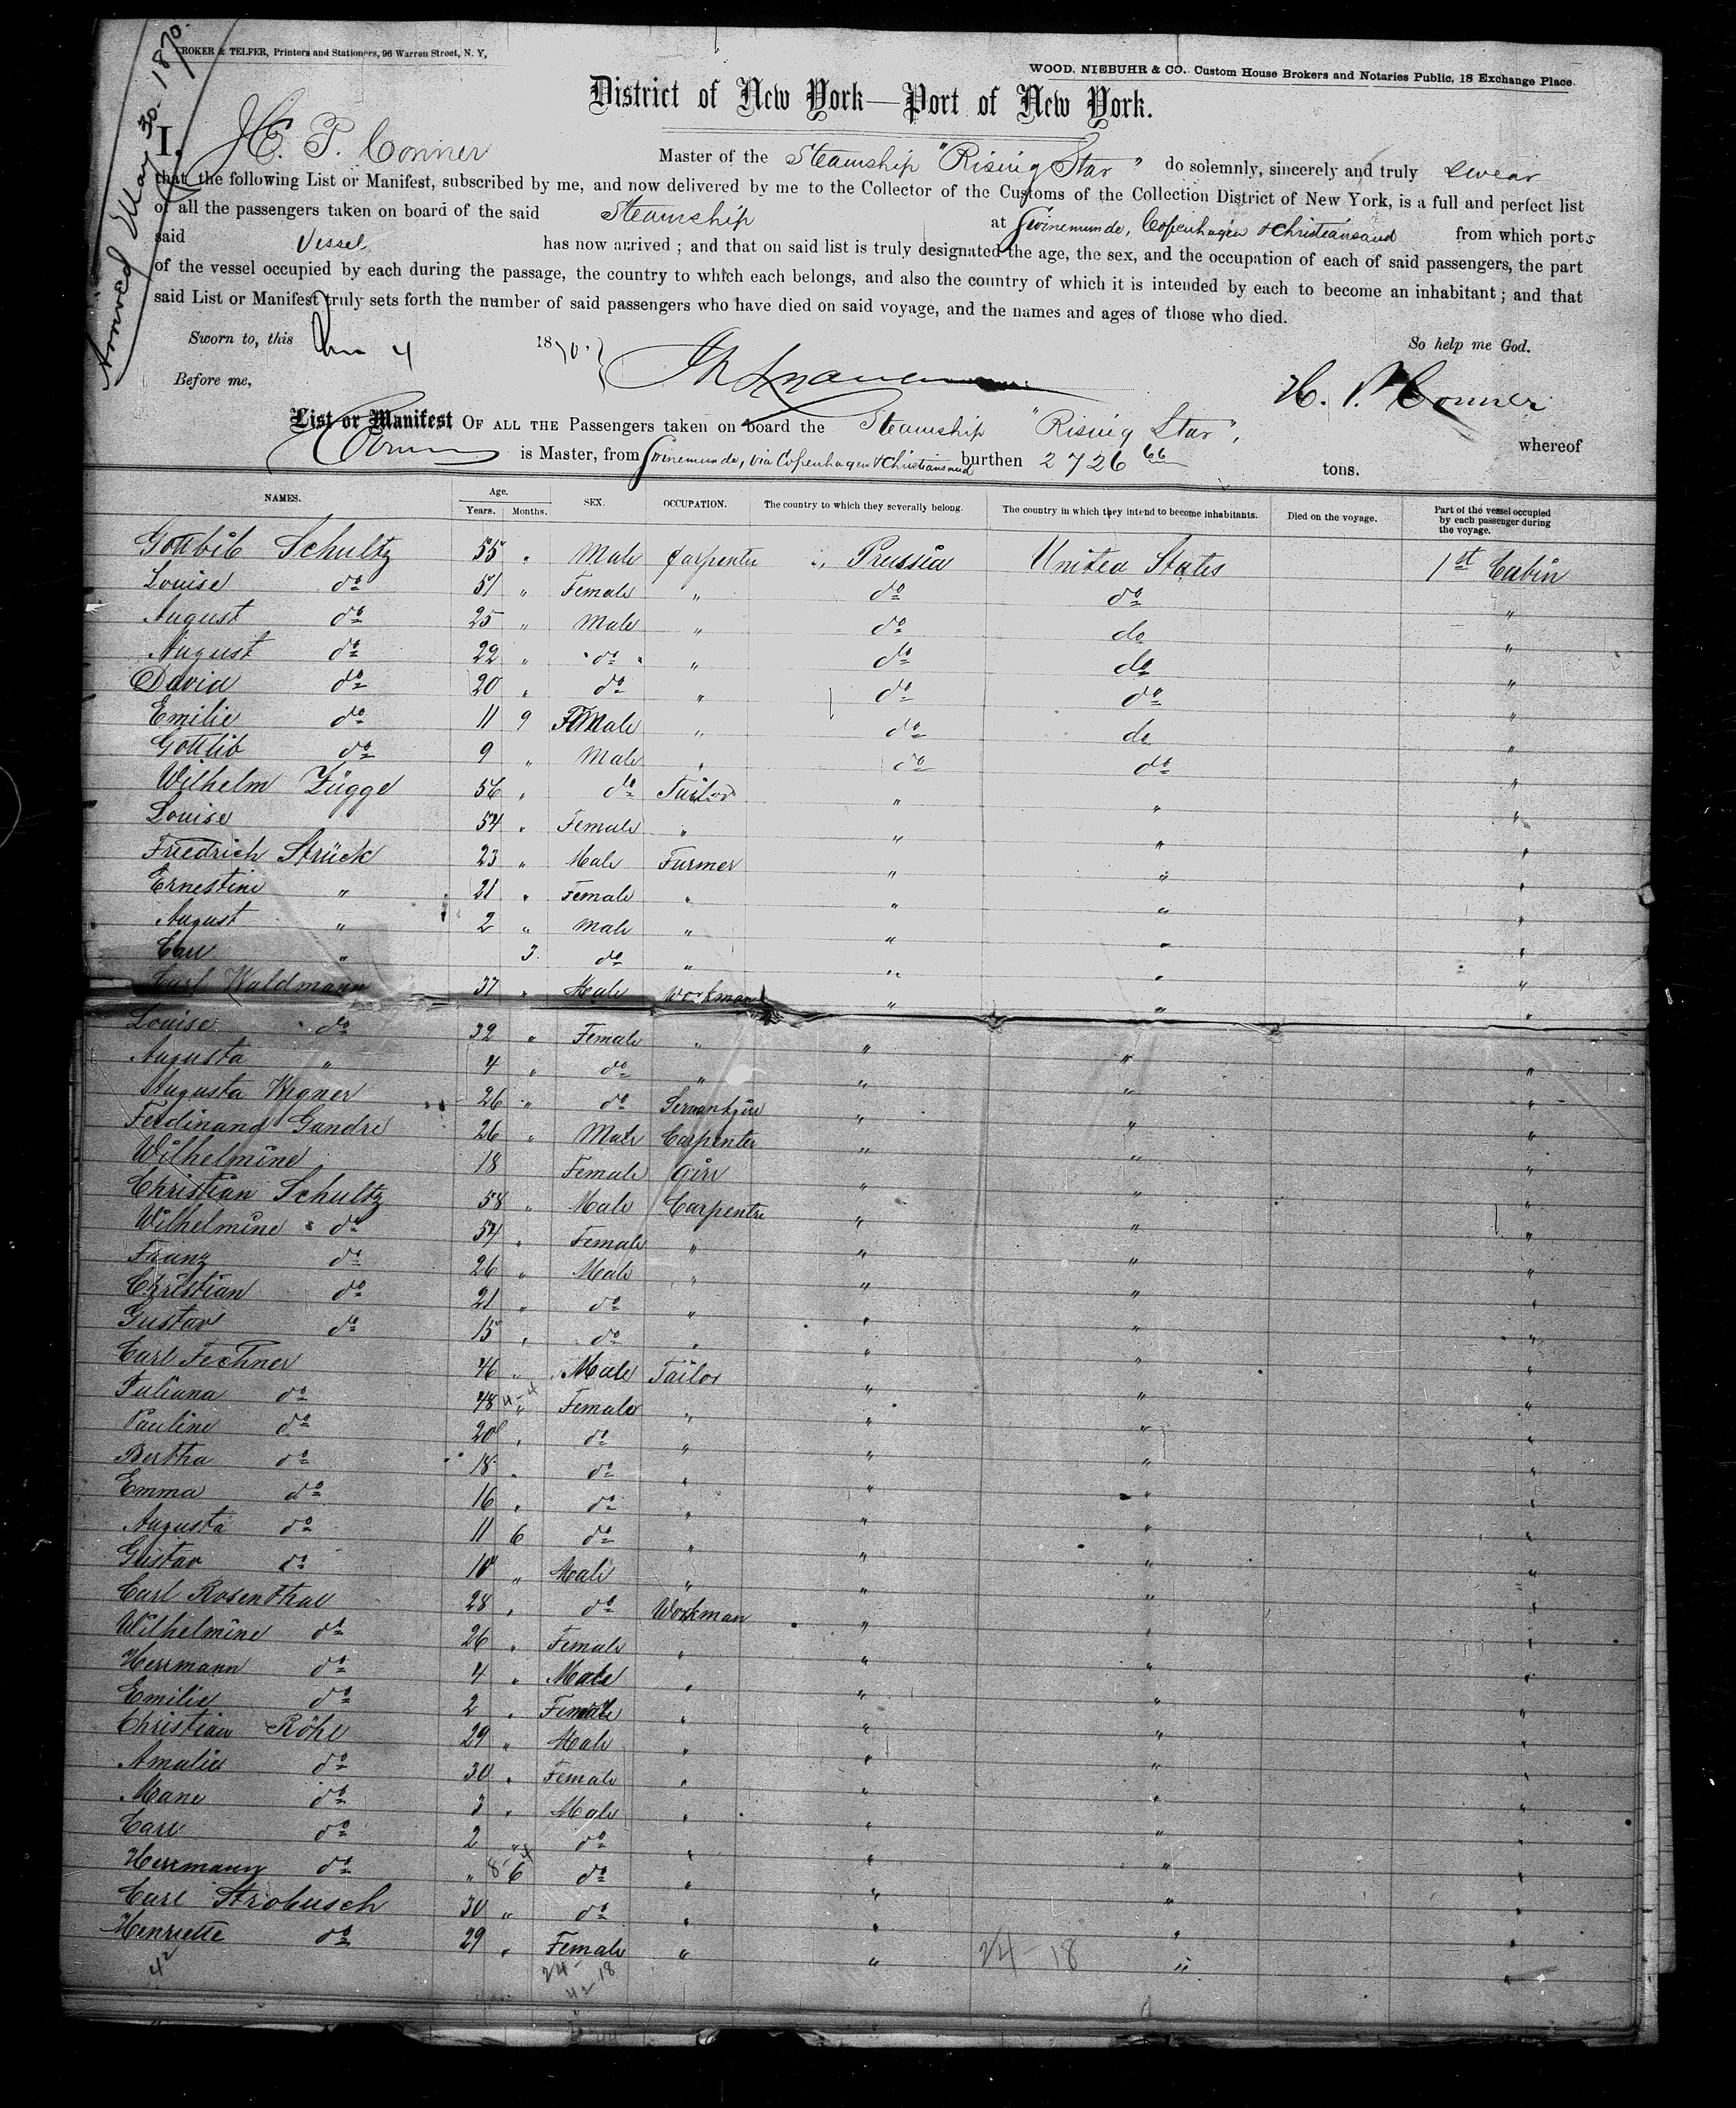 Arrived May 30. 1870.
CROKER & TELFER, Printers and Stationers, 96 Warren Street, N. Y,
WOOD, NIEBUHR & CO. Custom House Brokers and Notaries Public, 18 Exchange Place.
District of New York—Port of New York.
I, H. P. Conner Master of the Steamship "Rising Star" do solemnly, sincerely and truly swear
that the following List or Manifest, subscribed by me, and now delivered by me to the Collector of the Customs of the Collection District of New York, is a full and perfect list
of all the passengers taken on board of the said Steamship at Swinemunde, Copenhagen & Christiansand from which ports
said Vessel has now arrived; and that on said list is truly designated the age, the sex, and the occupation of each of said passengers, the part
of the vessel occupied by each during the passage, the country to which each belongs, and also the country of which it is intended by each to become an inhabitant; and that
said List or Manifest truly sets forth the number of said passengers who have died on said voyage, and the names and ages of those who died.
Sworn to, this 4 1870. So help me God.
Before me, H. P. Conner
List or Manifest OF ALL THE Passengers taken on board the Steamship "Rising Star", whereof
Conner is Master, from Swinemunde, via Copenhagen & Christiansand burthen 2726 66 tons.
NAMES. Age. Years. Months. SEX. OCCUPATION. The country to which they severally belong. The country in which they intend to become inhabitants. Died on the voyage. Part of the vessel occupied by each passenger during the voyage.
Gottbib Schultz 55 " Male Carpenter Prussia United States 1st Cabin
Louise do 51 " Female " do do "
August do 25 " Male " do do "
August do 22 " do " do do "
David do 20 " do " do do "
Emilie do 11 9 FeMale " do do "
Gottlib do 9 " Male " do do "
Wilhelm Zügge 56 " do Tailor " " "
Louise 54 " Female " " " "
Friedrich Strück 23 " Male Farmer " " "
Ernestine " 21 " Female " " " "
August " 2 " Male " " " "
Carl " 3 do " " " "
Carl Waldmann 37 " Male Workman " " "
Louise do 32 " Female " " " "
Augusta " 4 " do " " " "
Augusta Wegner 26 " do Servantgirl " " "
Ferdinand Gandre 26 " Male Carpenter " " "
Wilhelmine 18 Female Girl " " "
Christian Schultz 58 " Male Carpenter " " "
Wilhelmine do 54 " Female " " " "
Franz do 26 " Male " " " "
Christian do 21 " do " " " "
Gustav do 15 " do " " " "
Carl Fechner 46 " Male Tailor " " "
Juliana do 48 " Female " " " "
Pauline do 20 " do " " " "
Bertha do 18 " do " " " "
Emma do 16 " do " " " "
Augusta do 11 6 do " " " "
Gustav do 10 " Male " " " "
Carl Rosenthal 28 " do Workman " " "
Wilhelmine do 26 " Female " " " "
Herrmann do 4 " Male " " " "
Emilie do 2 " Female " " " "
Christian Röhl 29 " Male " " " "
Amalie do 30 " Female " " " "
Mane do 3 " Male " " " "
Carl do 2 " do " " " "
Herrmann do " 6 do " " " "
Carl Strobusch 30 " do " " " "
Henriette do 29 " Female " " " "
42 24 18 24-18
42